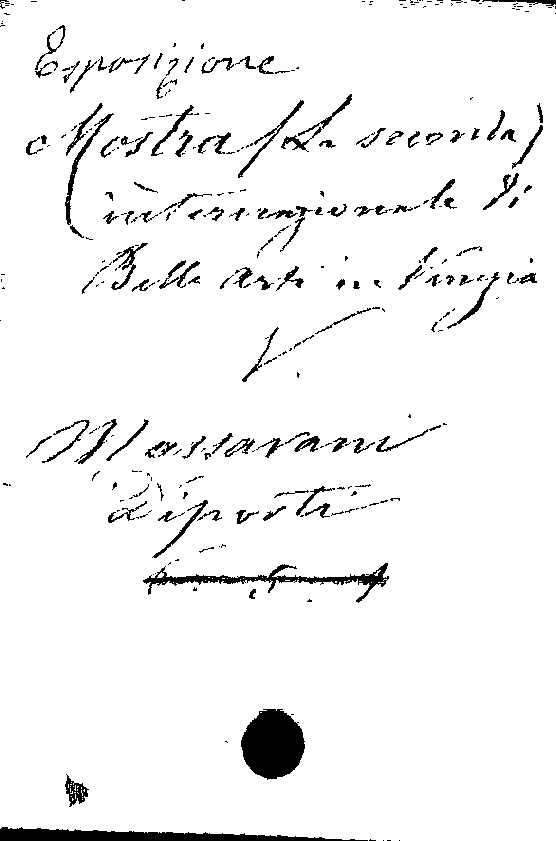 Esposizione
Mostra (La seconda)
internazionale di
Belle Arti in Venezia
V.
Massarani
Diporti